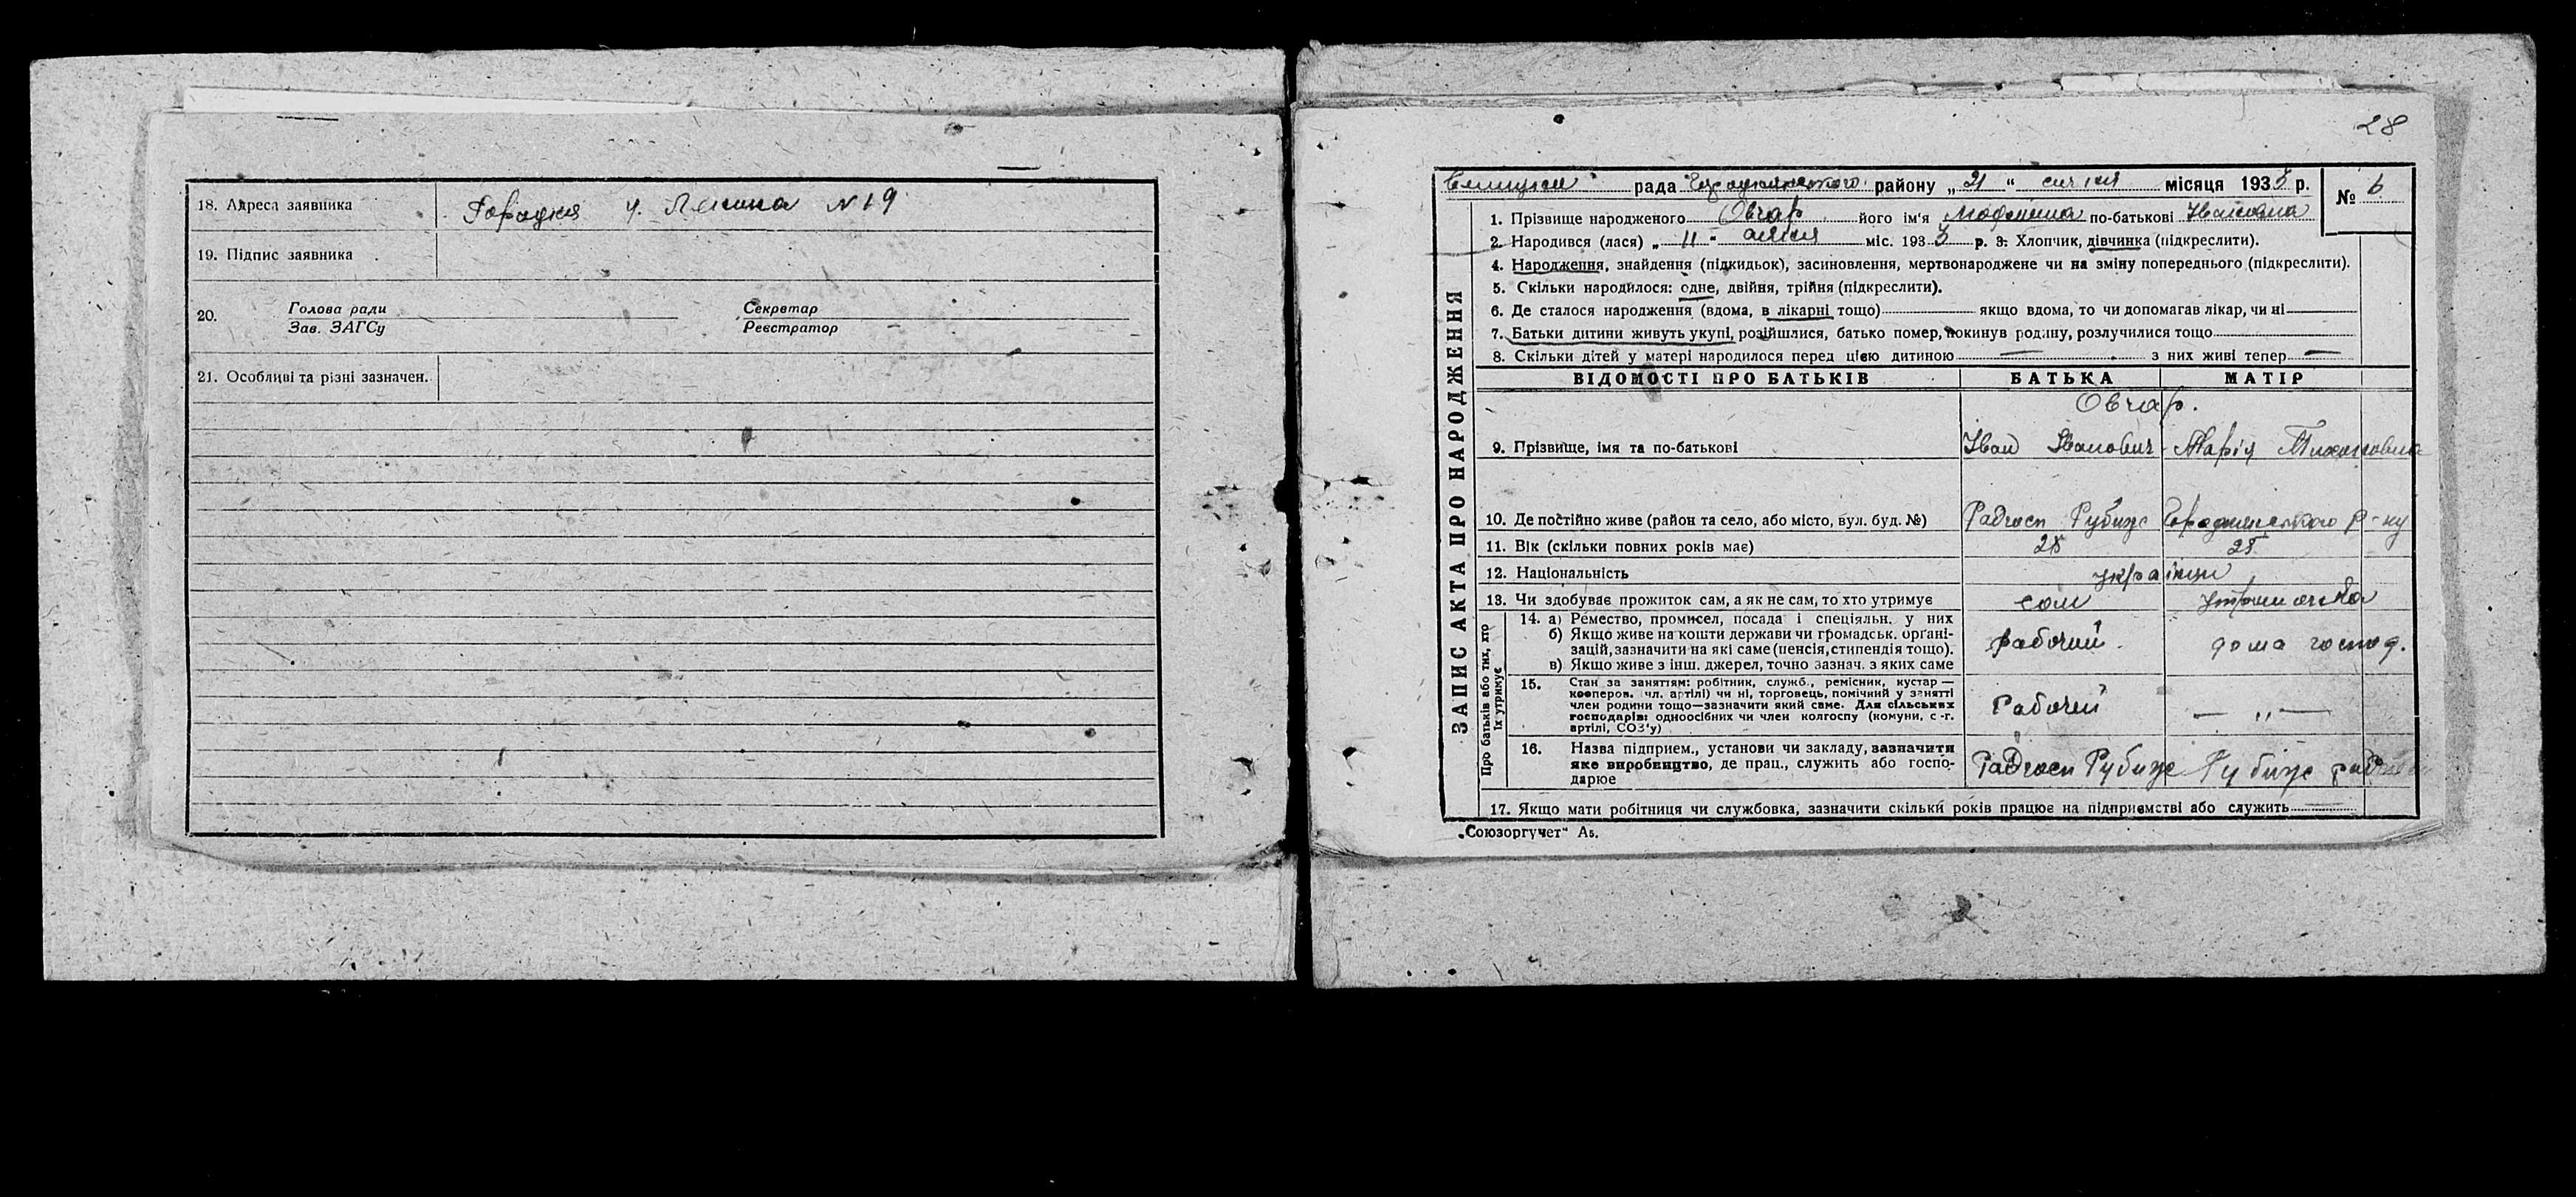 18. Адреса заявника Городня у. Леніна N 19
19. Підпис заявника
20. Голова ради Секретар
Зав. ЗАГСу Реєстратор
21. Особливі та різні зазначен.
28
рада Городнянського району „ 21 “ січня місяця 1933 р. № 6
1. Прізвище народженого Овчар його ім'я по-батькові Іванівна
2. Народився (лася) „ 11 “ січня міс. 193 3 р. 3. Хлопчик, дівчинка (підкреслити).
4. Народження, знайдення (підкидьок), засиновлення, мертвонароджене чи на зміну попереднього (підкреслити).
5. Скільки народилося: одне, двійня, трійня (підкреслити).
6. Де сталося народження (вдома, в лікарні тощо) якщо вдома, то чи допомагав лікар, чи ні —
7. Батьки дитини живуть укупі, розійшлися, батько помер, покинув родину, розлучилися тощо
8. Скільки дітей у матері народилося перед цією дитиною — з них живі тепер —
ЗАПИС АКТА ПРО НАРОДЖЕННЯ
ВІДОМОСТІ ПРО БАТЬКІВ БАТЬКА МАТІР
Овчар.
9. Прізвище, імя та по-батькові Іван Іванович Марія
10. Де постійно живе (район та село, або місто, вул. буд. №) Радгосп Рубіж Городнянського р-ну
11. Вік (скільки повних років має) 28 28
12. Національність українці
13. Чи здобуває прожиток сам, а як не сам, то хто утримує сам
Про батьків або тих, хто їх утримує
14. а) Ремество, промисел, посада і спеціяльн. у них
б) Якщо живе на кошти держави чи громадськ. органі-
зацій, зазначити на які саме (пенсія, стипендія тощо).
в) Якщо живе з інш. джерел, точно зазнач. з яких саме
рабочий. дома господ.
15. Стан за заняттям: робітник, служб., ремісник, кустар —
кооперов. чл. артілі) чи ні, торговець, помічний у занятті
член родини тощо—зазначити який саме. Для сільських
господарів: одноосібних чи член колгоспу (комуни, с.-г.
артілі, СОЗ'у)
Рабочий — „ —
16. Назва підприєм., установи чи закладу, зазначити
яке виробництво, де прац., служить або госпо-
дарює
Радгосп Рубіж Рубіж
17. Якщо мати робітниця чи службовка, зазначити скільки років працює на підприємстві або служить
„Союзоргучет“ А5.